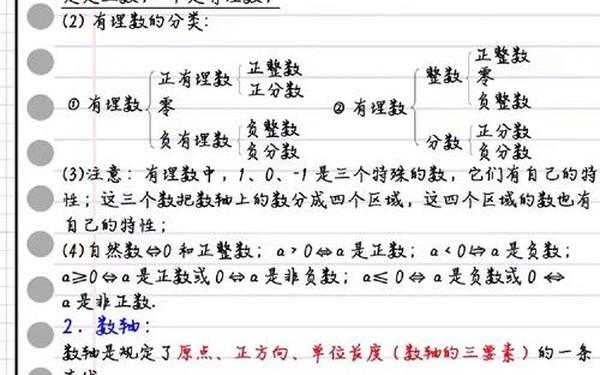 (2) 有理数的分类:
正整数 正整数
正有理数 整数 零
正分数 负整数
① 有理数 零 ② 有理数
负整数 正分数
负有理数 分数
负分数 负分数
(3)注意: 有理数中, 1、0、-1 是三个特殊的数, 它们有自己的特
性; 这三个数把数轴上的数分成四个区域, 这四个区域的数也有
自己的特性;
(4)自然数⇔0 和正整数; a>0⇔a 是正数; a<0⇔a 是负数;
a≥0⇔a 是正数或 0⇔a 是非负数; a≤0⇔a 是负数或 0⇔
a 是非正数.
2. 数轴:
数轴是规定了原点、正方向、单位长度(数轴的三要素)的一条